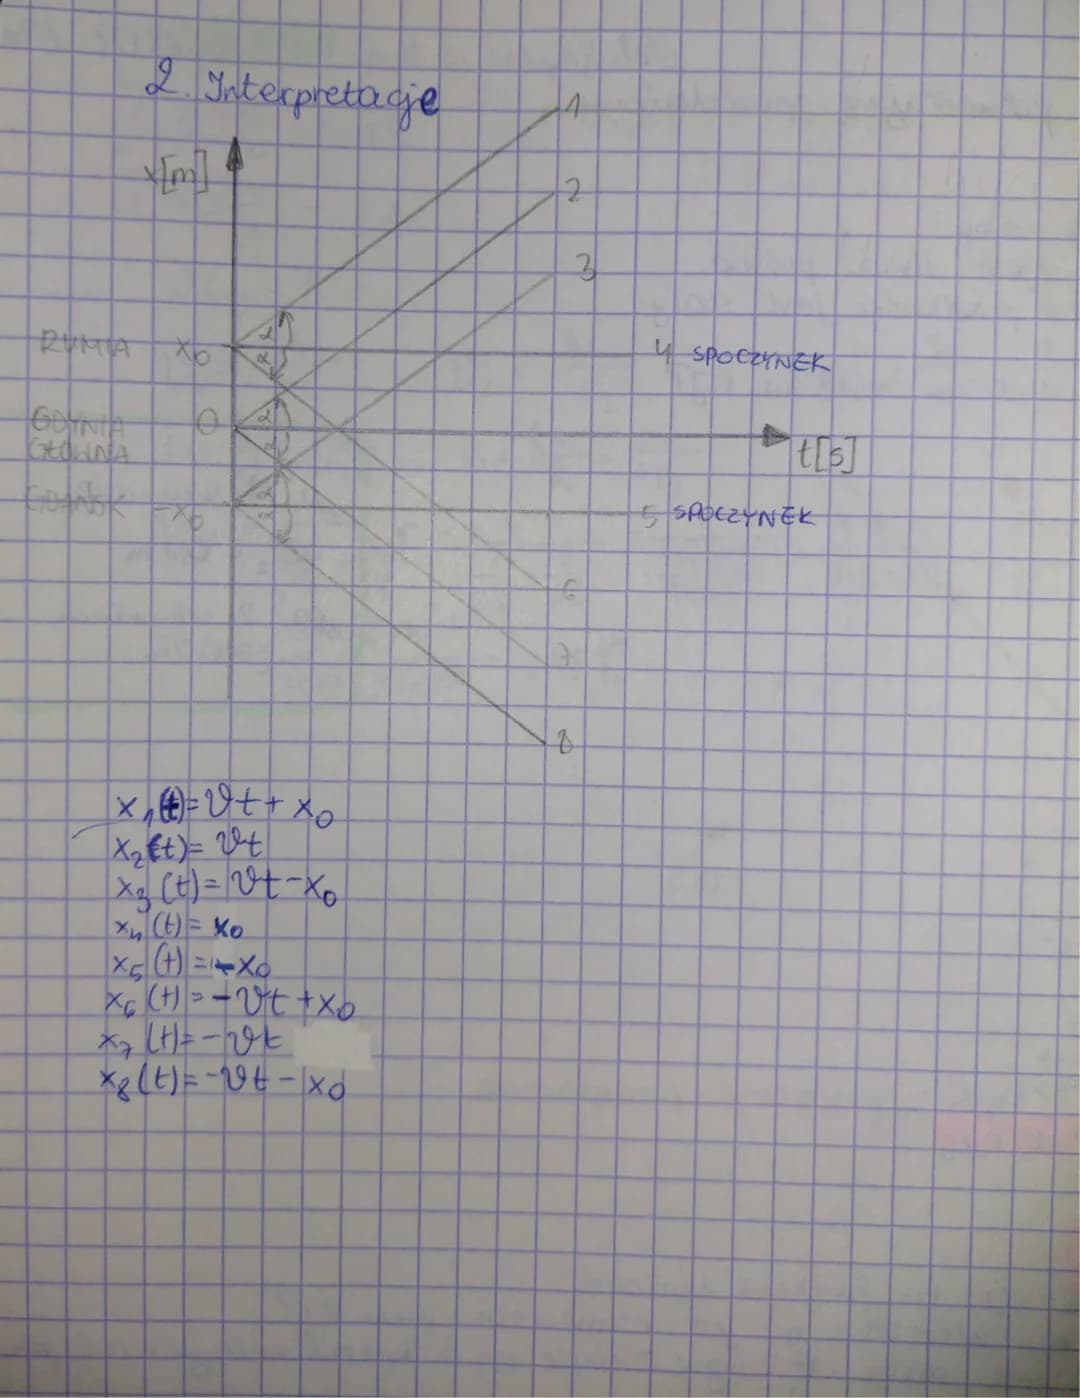 2. Interpretacje
1
x[m]
2
3
RUMIA x₀
α
α
4 SPOCZYNEK
GDYNIA
GŁÓWNA
0
α
α
t[s]
GDAŃSK -x₀
α
α
5 SPOCZYNEK
6
7
8
x₁(t)=vt+x₀
x₂(t)=vt
x₃(t)=vt-x₀
x₄(t)=x₀
x₅(t)=-x₀
x₆(t)=-vt+x₀
x₇(t)=-vt
x₈(t)=-vt-x₀